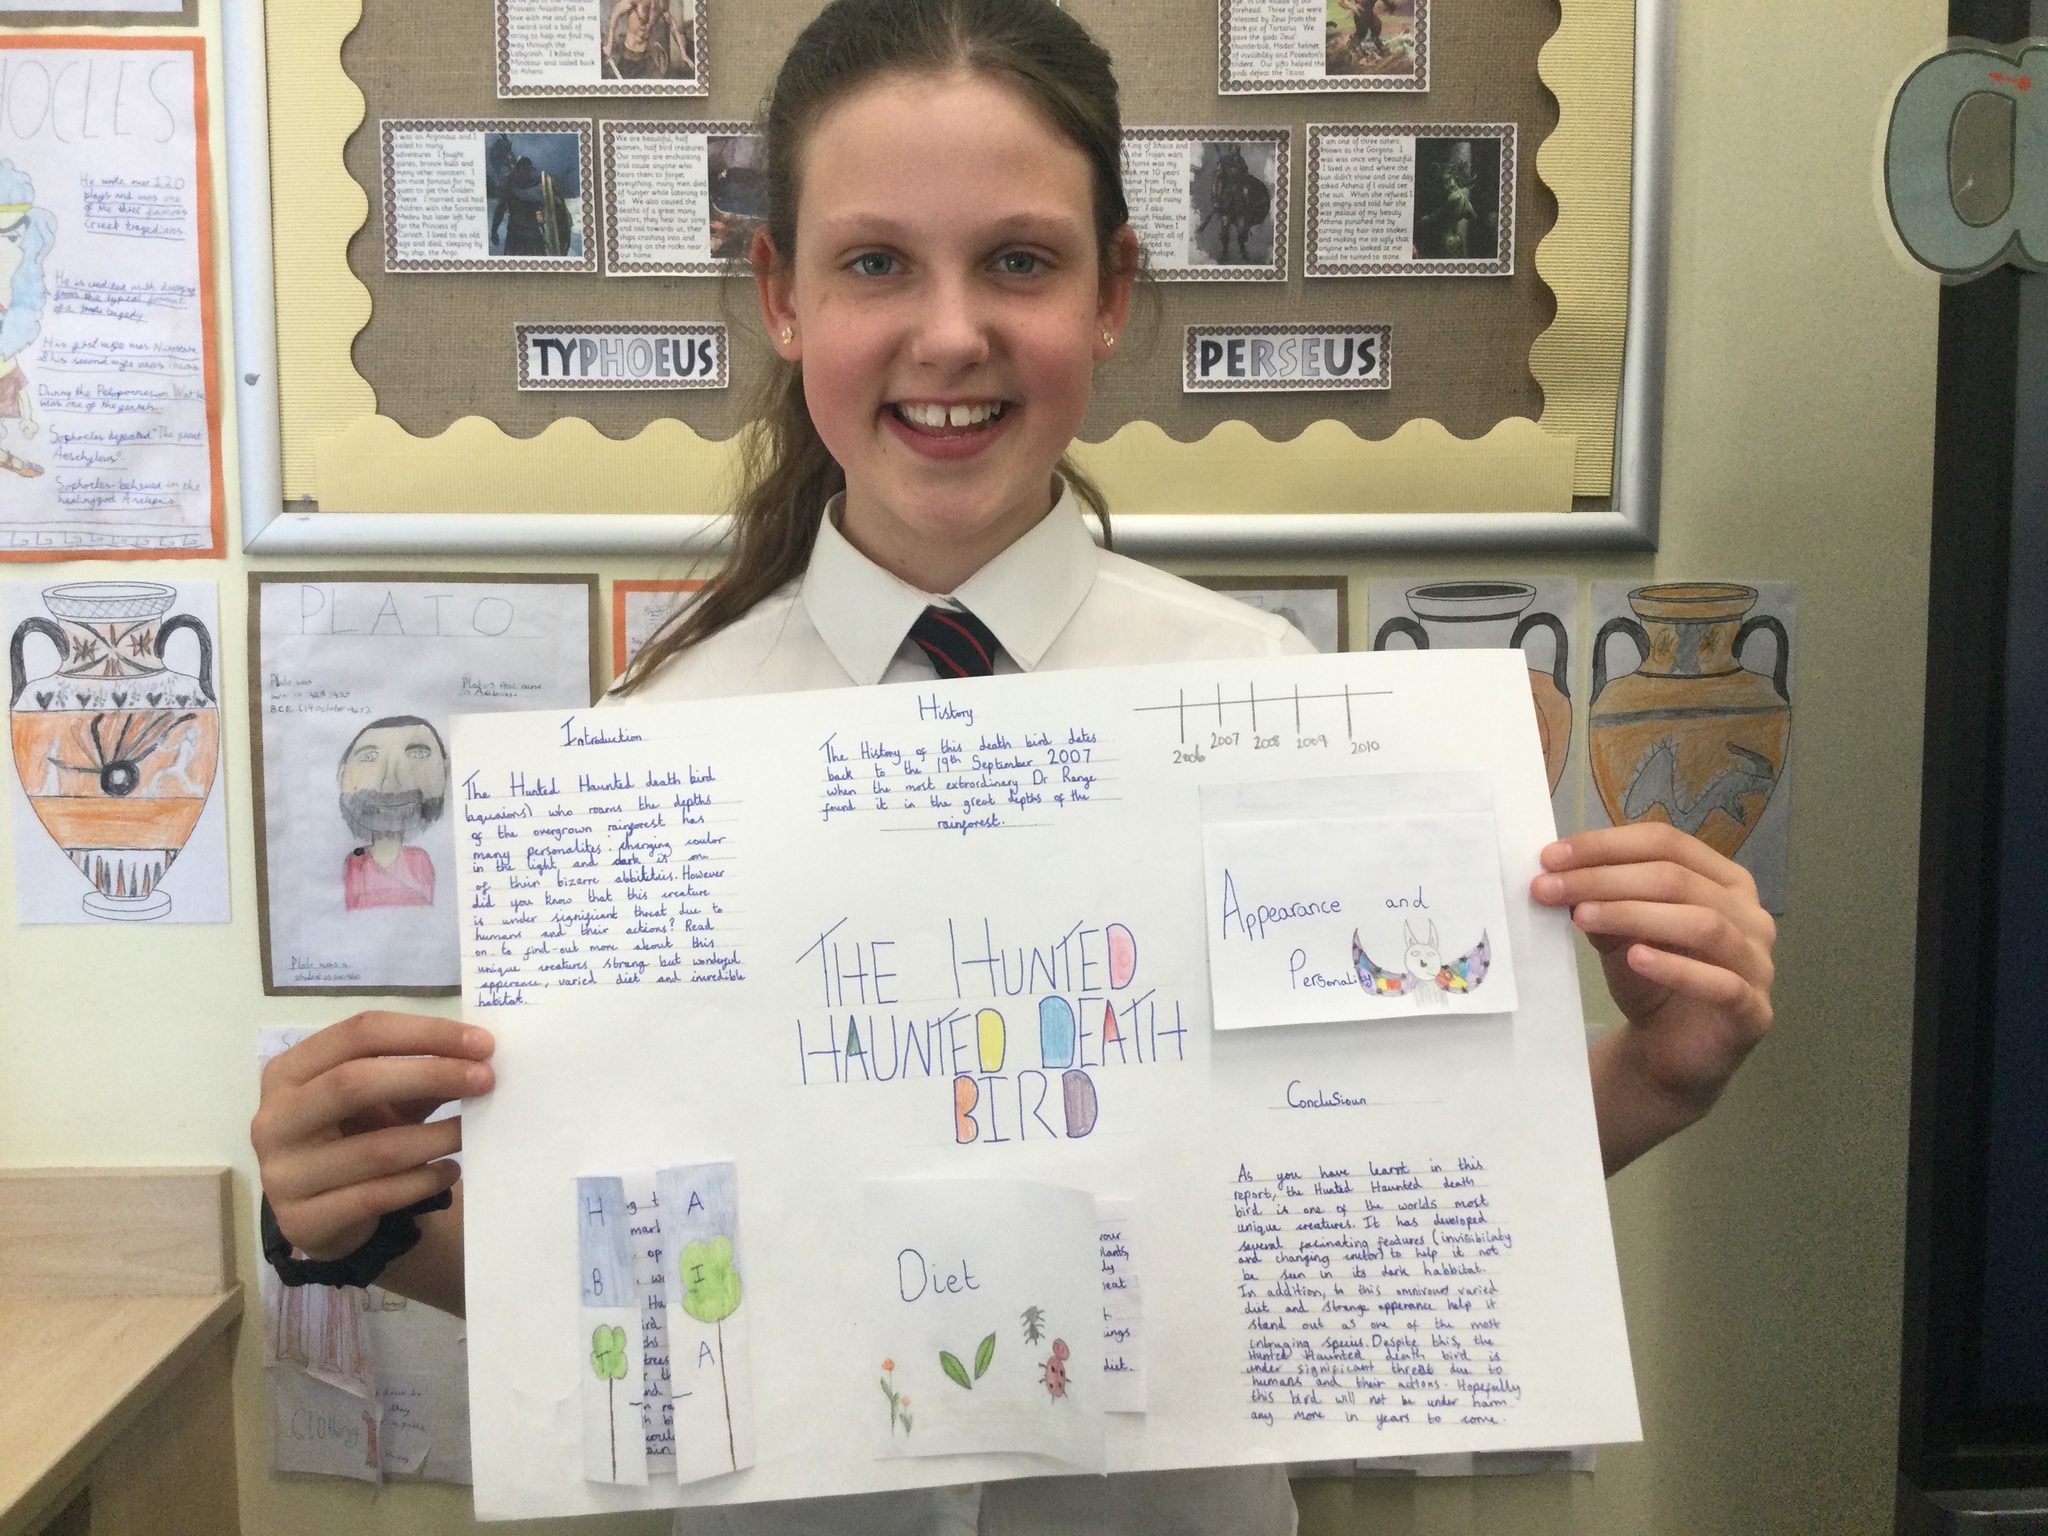 to help me find my
way through the
Labyrinth. I killed the
Minotaur and sailed back
to Athens
forehead. Three of us were
released by Zeus from the
dark pit of Tartarus. We
gave the gods Zeus'
thunderbolt, Hades' helmet
of invisibility and Poseidon's
trident. Our gifts helped the
gods defeat the Titans.
I was an Argonaut and I
sailed to many
adventures. I fought
giants, bronze bulls and
many other monsters. I
am most famous for my
quest to get the Golden
Fleece. I married and had
children with the Sorceress
Medea but later left her
for the Princess of
Corinth. I lived to an old
age and died, sleeping by
my ship, the Argo.
We are beautiful, half
women, half bird creatures.
Our songs are enchanting
and cause anyone who
hears them to forget
everything, many men died
of hunger while listening to
us. We also caused the
deaths of a great many
sailors, they hear our song
and sail towards us, their
ships crashing into and
sinking on the rocks near
our home.
King of Ithaca and
the Trojan wars
horse was my
ok me 10 years
home from Troy
I fought the
Sirens and many
I also
through Hades, the
dead. When I
I fought all of
I am one of three sisters,
known as the Gorgons. I
was once very beautiful.
I lived in a land where the
sun didn't shine and one day
asked Athena if I could see
the sun. When she refused I
got angry and told her she
was jealous of my beauty.
Athena punished me by
turning my hair into snakes
and making me so ugly that
anyone who looked at me
would be turned to stone
TYPHOEUS
PERSEUS
a
OCLES
He wrote over 120
plays and was one
of the three famous
Greek tragedians.
He is credited with
from the typical format
of a tragedy
His first wife was
& his second wife was
During the Peloponnesian War he
was one of the
Sophocles defeated "The great
Aeschylus"
Sophocles believed in the
healing god
PLATO
Plato was
born in
B.C.E.
Plato's real name
Plato was a
Clothing
Introduction
The Hunted Haunted death bird
(aquaions) who roams the depths
of the overgrown rainforest has
many personalites: changing coulor
in the light and dark is one
of their bizarre abbiteties. However
did you know that this creature
is under significant threat due to
humans and their actions? Read
on to find-out more about this
unique creatures strang but wonderful
apperance, varied diet and incredible
habitat.
History
The History of this death bird dates
back to the 19th September 2007
when the most extrordinary Dr Range
found it in the great depths of the
rainforest.
2006 2007 2008 2009 2010
THE HUNTED
HAUNTED DEATH
BIRD
Appearance and
Personality
H A
B I
T A
Diet
diet.
Conclusioun
As you have learnt in this
report, the Hunted Haunted death
bird is one of the worlds most
unique creatures. It has developed
several facinating features (invisibilaty
and changing coulor) to help it not
be seen in its dark habbitat.
In addition, to this omnivours varied
diet and strange apperance help it
stand out as one of the most
intruging species. Despite this, the
Hunted Haunted death bird is
under significant threat due to
humans and their actions. Hopefully
this bird will not be under harm
any more in years to come.